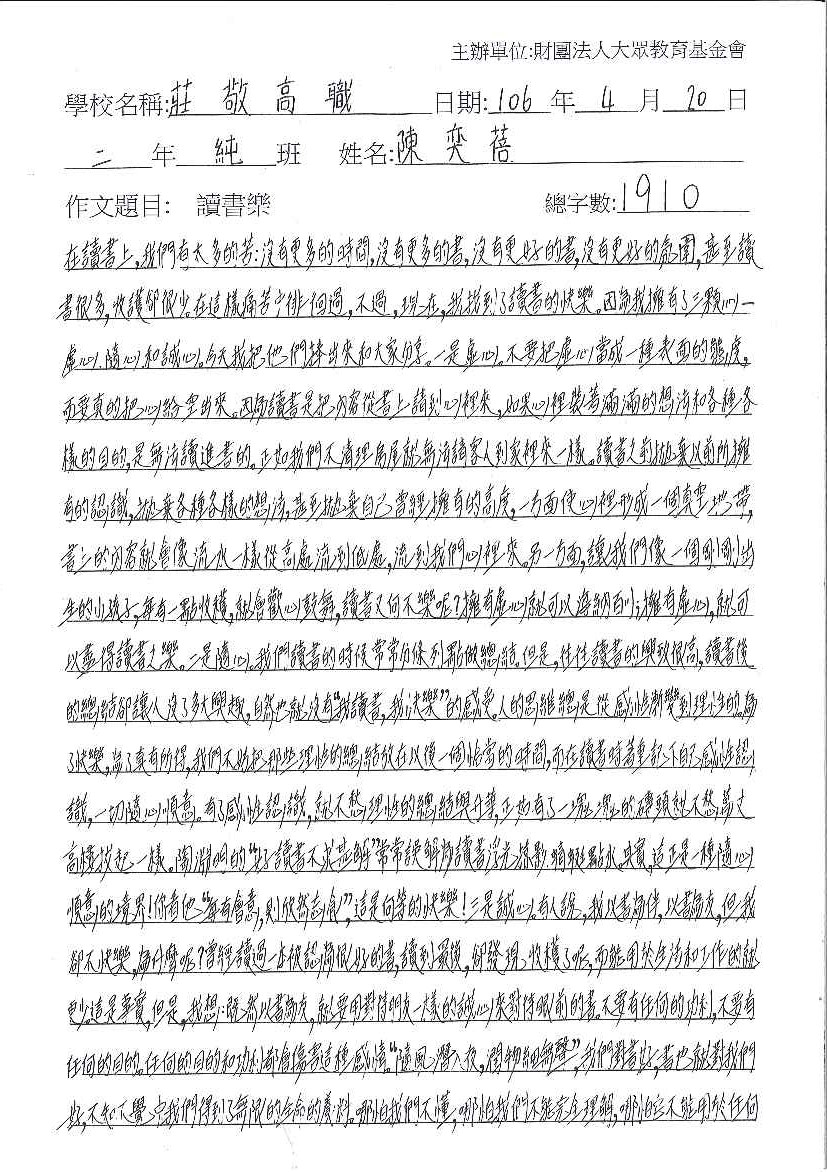 主辦單位:財團法人大眾教育基金會
學校名稱:莊敬高職 日期:106年4月20日
二年純班 姓名:陳奕蓓
作文題目: 讀書樂 總字數:1910
在讀書上,我們有太多的苦:沒有更多的時間,沒有更多的書,沒有更好的書,沒有更好的氛圍,甚至讀
書很多,收獲卻很少。在這樣痛苦中徘徊過,不過,現在,我找到了讀書的快樂。因為我擁有了三顆心—
虛心、隨心和誠心。今天我把他們捧出來和大家分享。一是虛心。不要把虛心當成一種表面的態度,
而要真的把心給空出來。因為讀書是把內容從書上請到心裡來,如果心裡裝著滿滿的想法和各種各
樣的目的,是無法讀進書的。正如我們不清理房屋就無法請客人到家裡來一樣。讀書之前拋棄以前所擁
有的認識,拋棄各種各樣的想法,甚至拋棄自己曾經擁有的高度,一方面使心裡形成一個真空地帶,
書上的內容就會像流水一樣從高處流到低處,流到我們心裡來。另一方面,讓我們像一個剛剛出
生的小孩子,每有一點收穫,就會歡心鼓舞,讀書又何不樂呢?擁有虛心就可以海納百川,擁有虛心,就可
以盡得讀書之樂。二是隨心。我們讀書的時候常常分條列點做總結。但是,往往讀書的興致很高,讀書後
的總結卻讓人沒了多大興趣,自然也就沒有“我讀書,我快樂”的感受。人的思維總是從感性漸變到理性的。為
了快樂,為了真有所得,我們不妨把那些理性的總結放在以後一個恰當的時間,而在讀書時著重記下自己感性認
識,一切隨心順意。有了感性認識,就不愁理性的總結與升華,正如有了一塊塊的磚頭就不愁萬丈
高樓拔起一樣。陶淵明的“好讀書不求甚解”常常誤解為讀書浮光掠影、蜻蜓點水。其實,這正是一種隨心
順意的境界!你看他“每有會意,則欣然忘食”,這是何等的快樂!三是誠心。有人說,我以書為伴,以書為友,但我
卻不快樂,為什麼呢?曾經讀過一本被認為很好的書,讀到最後,卻發現收穫了呢,而能用於生活和工作的就
更少。這是事實,但是,我想:既然以書為友,就要用對待朋友一樣的誠心來對待眼前的書。不要有任何的功利,不要有
任何的目的。任何的目的和功利都會傷害這種感情。“隨風潛入夜,潤物細無聲”,我們對書好,書也就對我們
好,不知不覺中我們得到了無限的生命的養料。哪怕我們不懂,哪怕我們不能完全理解,哪怕它不能用於任何